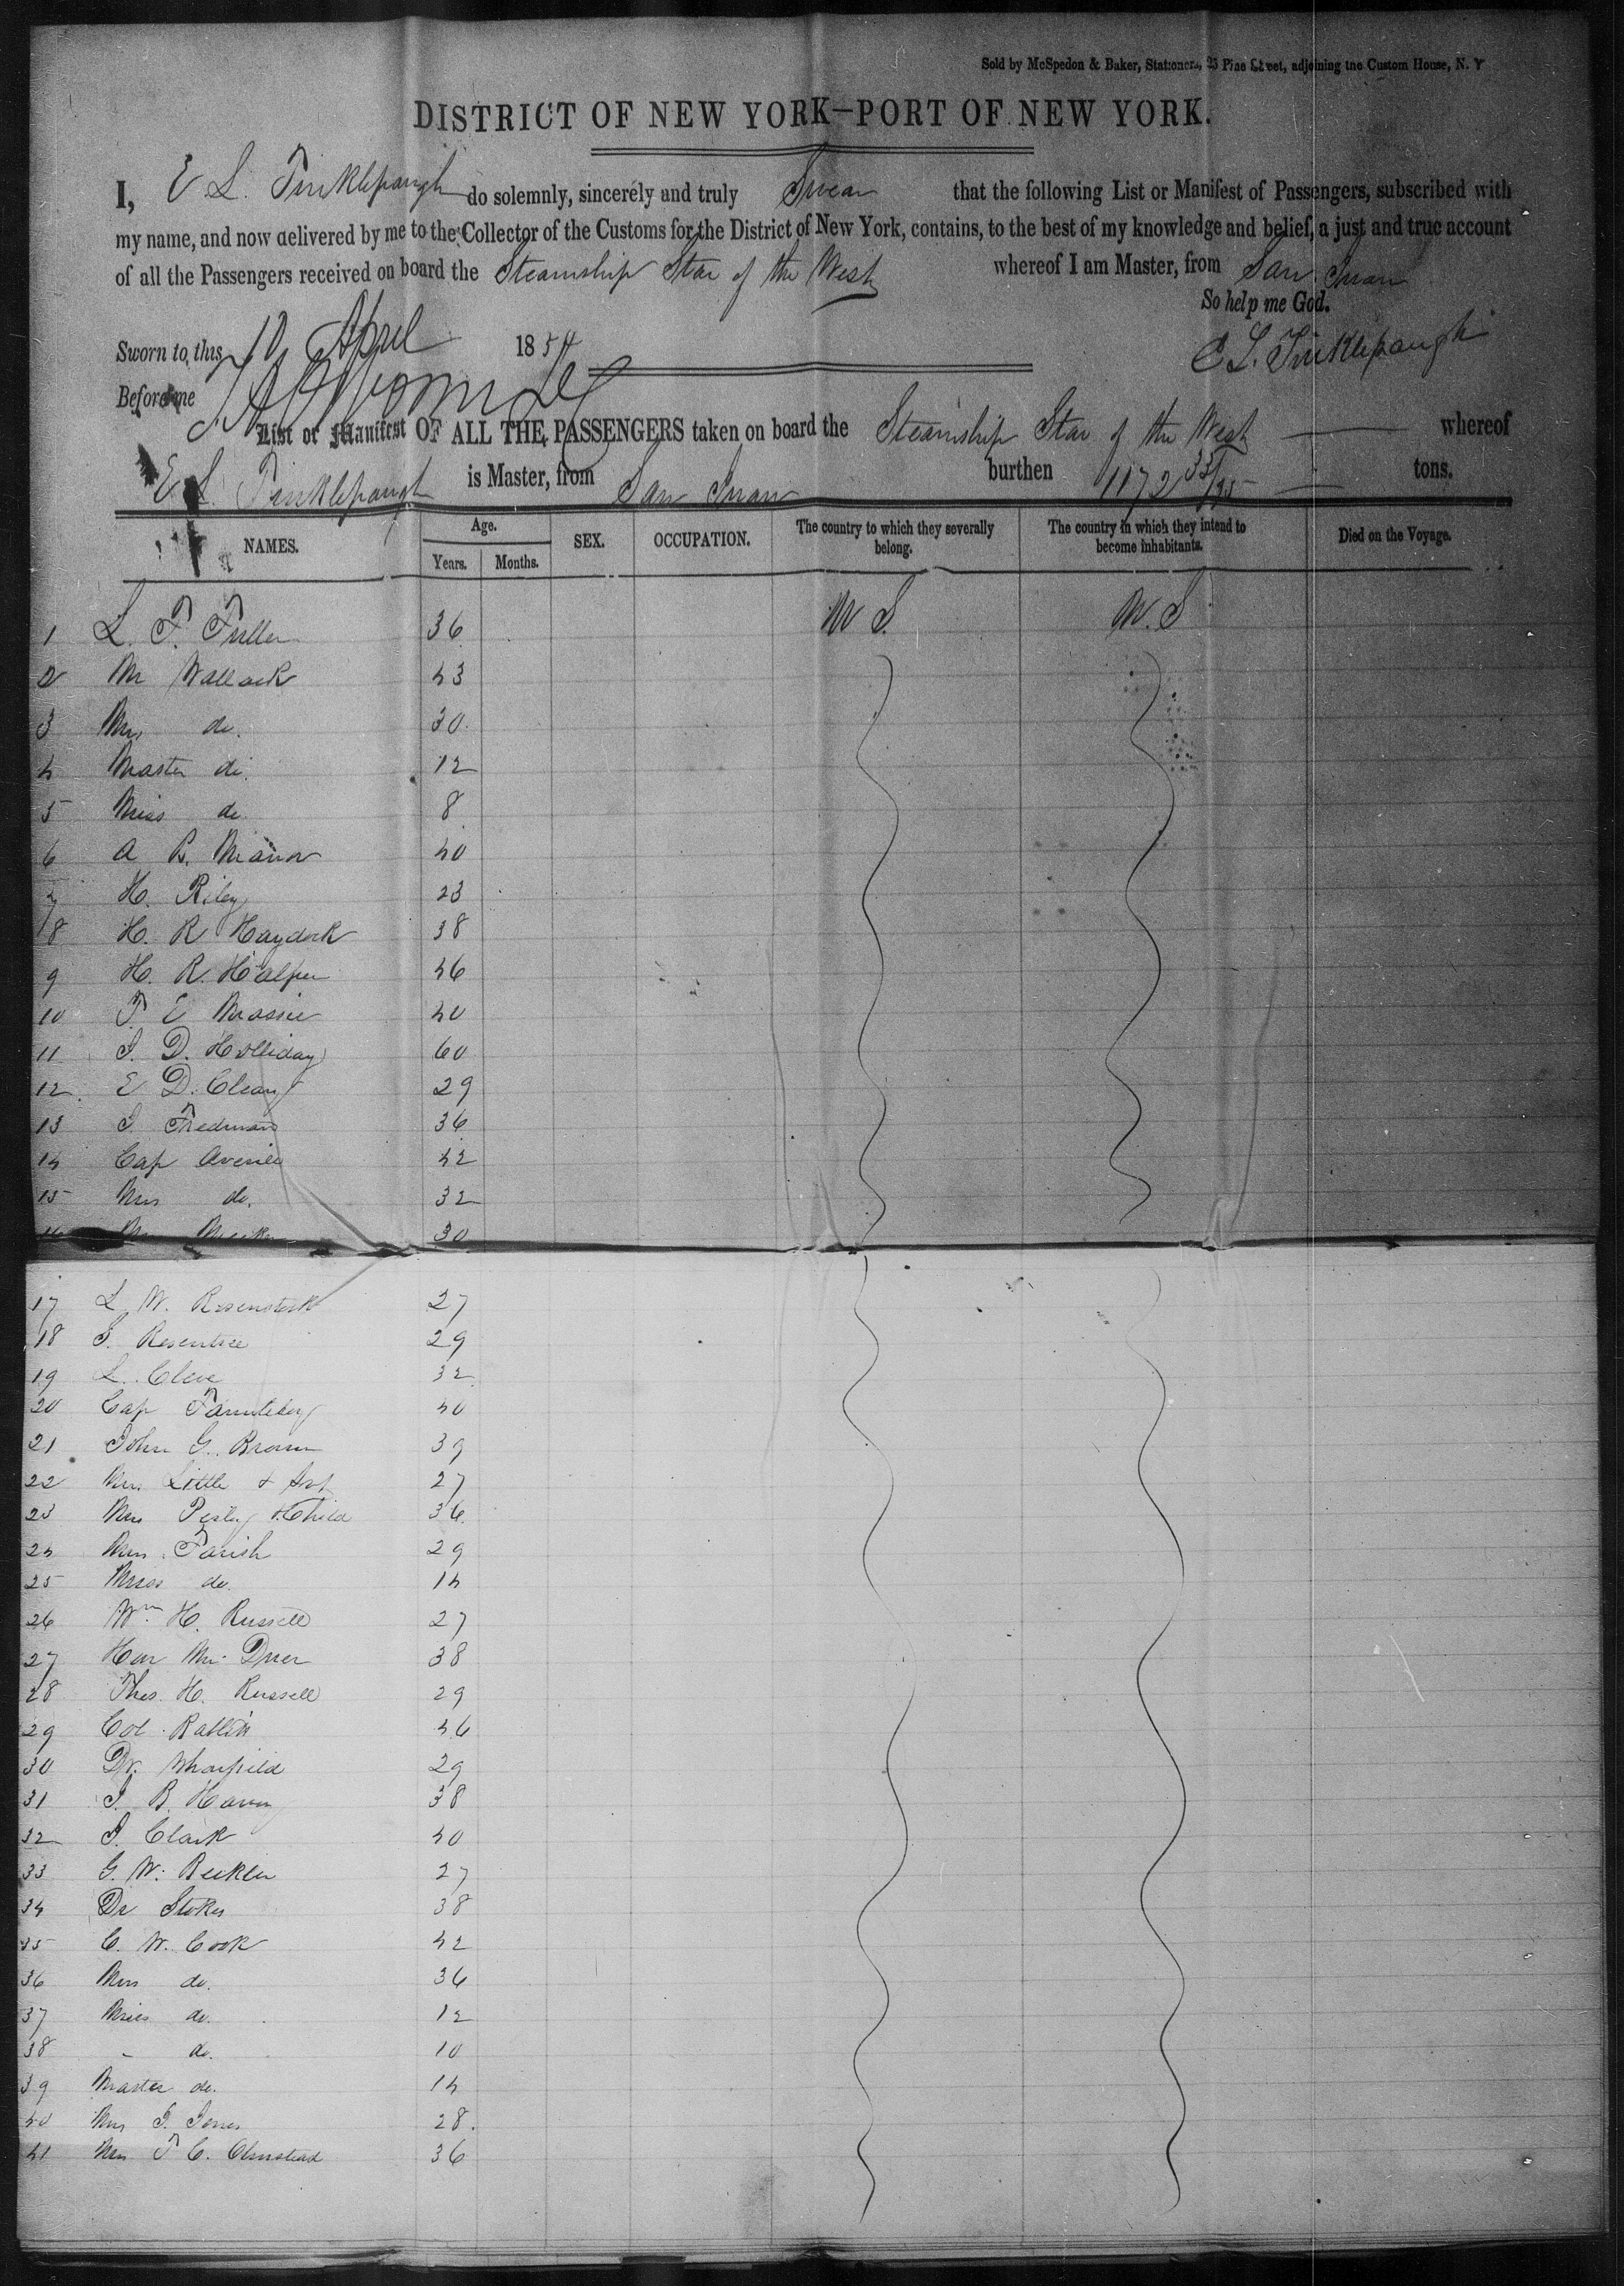 Sold by McSpedon & Baker, Stationers, 25 Pine Street, adjoining the Custom House, N. Y
DISTRICT OF NEW YORK—PORT OF NEW YORK.
I, E L. Tinklepaugh do solemnly, sincerely and truly Swear that the following List or Manifest of Passengers, subscribed with
my name, and now delivered by me to the Collector of the Customs for the District of New York, contains, to the best of my knowledge and belief, a just and true account
of all the Passengers received on board the Steamship Star of the West whereof I am Master, from San Juan
So help me God.
Sworn to, this 10 April 1854
E L. Tinklepaugh
Before me
List or Manifest OF ALL THE PASSENGERS taken on board the Steamship Star of the West whereof
E L. Tinklepaugh is Master, from San Juan burthen 1172 33/95 tons.
NAMES. Age. Years. Months. SEX. OCCUPATION. The country to which they severally belong. The country in which they intend to become inhabitants. Died on the Voyage.
1 L. F. Fuller 36 U S. U. S
2 Mr Wallack 43
3 Mrs do. 30
4 Master do. 12
5 Miss do. 8
6 A B. Mann 40
7 H. Riley 23
8 H. R Haydock 38
9 H. R. Halpen 46
10 F. E Massie 40
11 J. D. Holliday 60
12. E D. Cleary 29
13 J Friedman 36
14 Cap Averill 42
15 Mrs do. 32
16 30
17 L W. Rosenstock 27
18 J. Rosentree 29
19 L. Cleve 32
20 Cap 40
21 John G. Brown 39
22 Mrs Little & Inf 27
23 Mrs & Child 36
24 Mrs Farish 29
25 Miss do. 14
26 Wm H. Russell 27
27 Hon Mr Duer 38
28 Thos. H. Russell 29
29 Col. 46
30 Dr. Wharfield 29
31 J. B. 38
32 J. Clark 40
33 G. W. 27
34 Dr Stokes 38
35 C. W. Cook 42
36 Mrs do. 36
37 Miss do. 12
38 - do. 10
39 Master do. 14
40 Mrs J. Jones 28.
41 Mrs F C. Olmstead 36